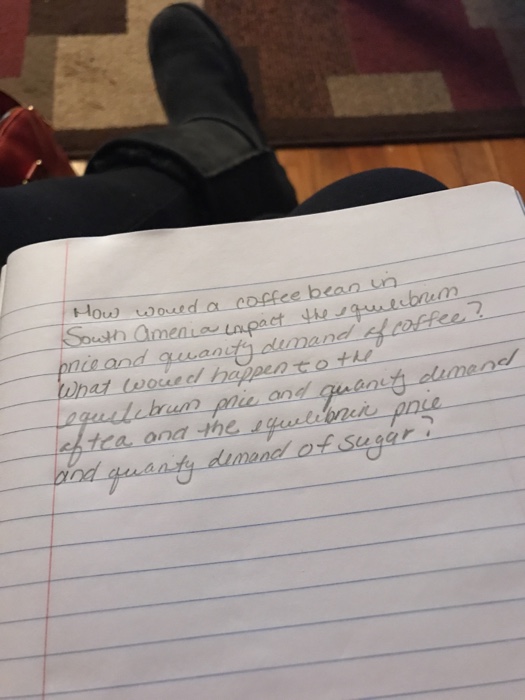 How would a coffee bean in
South America impact the equilibrum
price and quanity demand of coffee?
What would happen to the
equilibrum price and quanity demand
of tea and the equilibrium price
and quanity demand of sugar?